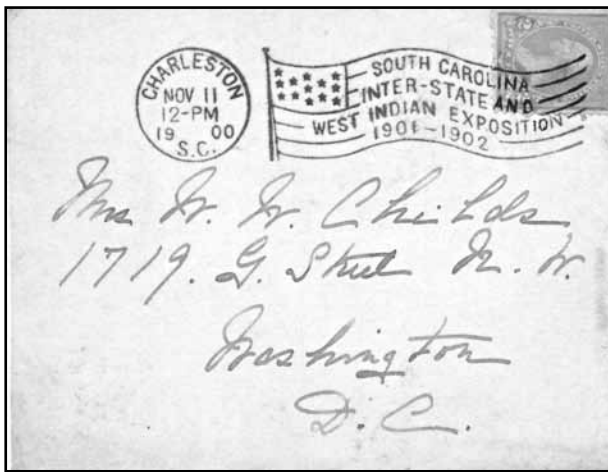 CHARLESTON
NOV 11
12-PM
19 00
S.C.
SOUTH CAROLINA
INTER-STATE AND
WEST INDIAN EXPOSITION
1901-1902
Mrs W. W. Childs
1719. G. Street N. W.
Washington
D. C.